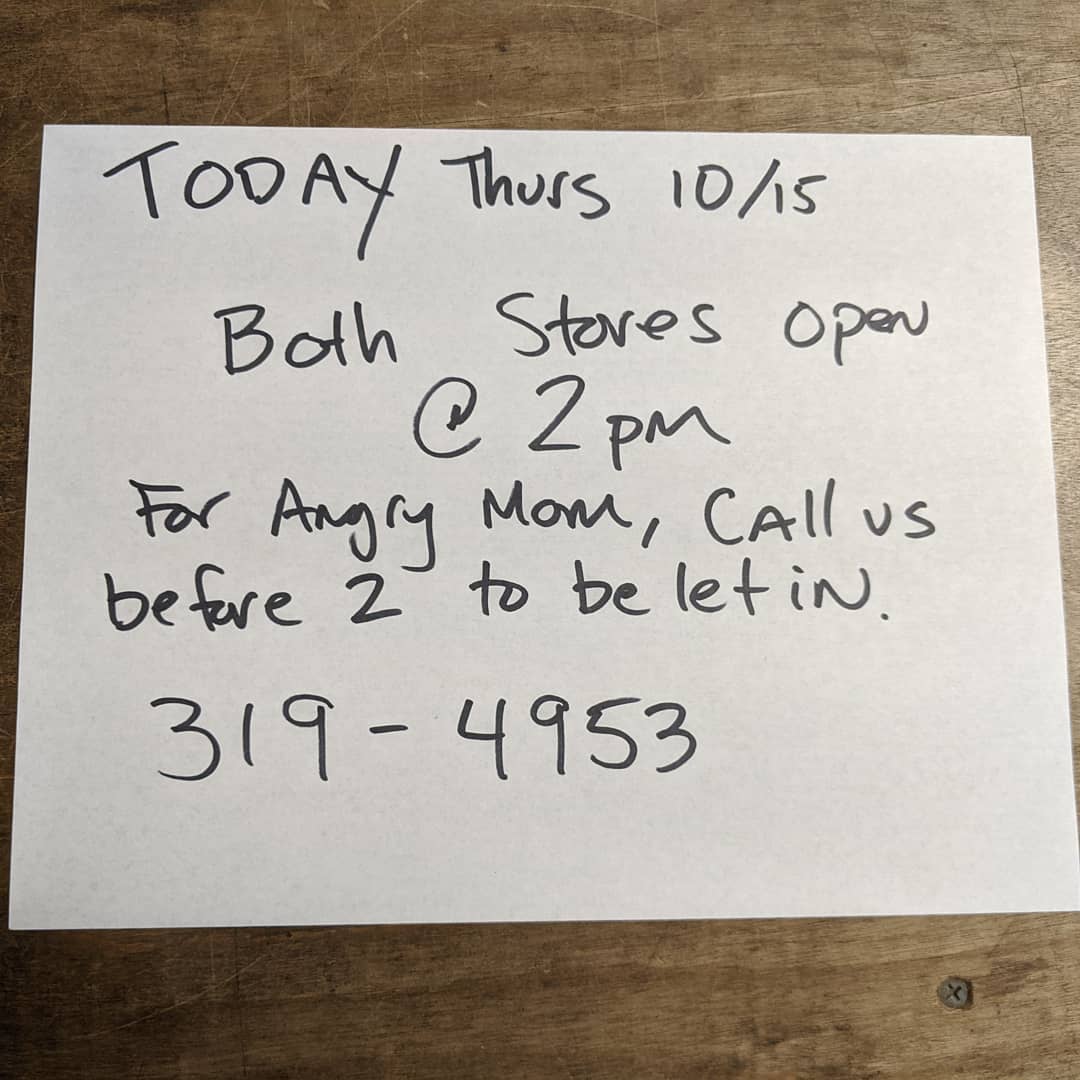 TODAY Thurs 10/15
Both Stores open
@ 2 pm
For Angry Mom, CAll us
before 2 to be let iN.
319-4953